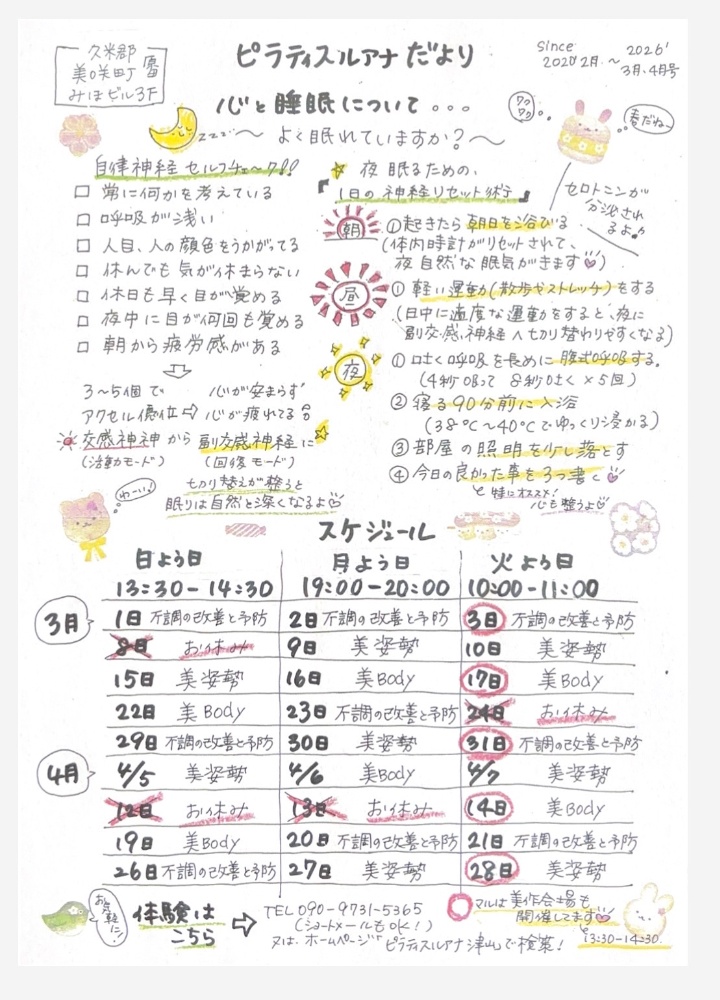 久米郡
美咲町原田
みほビル3F
ピラティスルアナだより
since
2020'2月〜2026'
3月、4月号
心と睡眠について。。。
zzz… 〜よく眠れていますか?〜
ワクワク
春だね〜
自律神経セルフチェーック!!
□ 常に何かを考えている
□ 呼吸が浅い
□ 人目、人の顔色をうかがってる
□ 休んでも気が休まらない
□ 休日も早く目が覚める
□ 夜中に目が何回も覚める
□ 朝から疲労感がある
3〜5個で
アクセル優位⇨
心が安まらず
心が疲れてる
交感神神から副交感神経に
(活動モード) (回復モード)
切り替えが整うと
眠りは自然と深くなるよ
わーい!
☆ 夜眠るための、
『1日の神経リセット術』
セロトニンが
分泌され
るよ♪
朝
①起きたら朝日を浴びる
(体内時計がリセットされて、
夜自然な眠気がきます♡)
昼
① 軽い運動(散歩やストレッチ)をする
(日中に適度な運動をすると、夜に
副交感神経へ切り替わりやすくなる)
夜
①吐く呼吸を長めに腹式呼吸する。
(4秒吸って 8秒吐く×5回)
② 寝る90分前に入浴
(38℃〜40℃でゆっくり浸かる)
③ 部屋の照明を少し落とす
④ 今日の良かった事を3つ書く♡
特にオススメ!
心も整うよ♡
スケジュール
日よう日 月よう日 火よう日
13:30-14:30 19:00-20:00 10:00-11:00
3月
1日 不調の改善と予防 2日 不調の改善と予防 3日 不調の改善と予防
8日 お休み 9日 美姿勢 10日 美姿勢
15日 美姿勢 16日 美Body 17日 美Body
22日 美Body 23日 不調の改善と予防 24日 お休み
29日 不調の改善と予防 30日 美姿勢 31日 不調の改善と予防
4月
4/5 美姿勢 4/6 美Body 4/7 美姿勢
12日 お休み 13日 お休み 14日 美Body
19日 美Body 20日 不調の改善と予防 21日 不調の改善と予防
26日 不調の改善と予防 27日 美姿勢 28日 美姿勢
お気軽に!
体験は
こちら
⇨
TEL 090-9731-5365
(ショートメールもOK!)
又は、ホームページ
ピラティスルアナ津山で検索!
○マルは美作会場も
開催してます♡
13:30-14:30